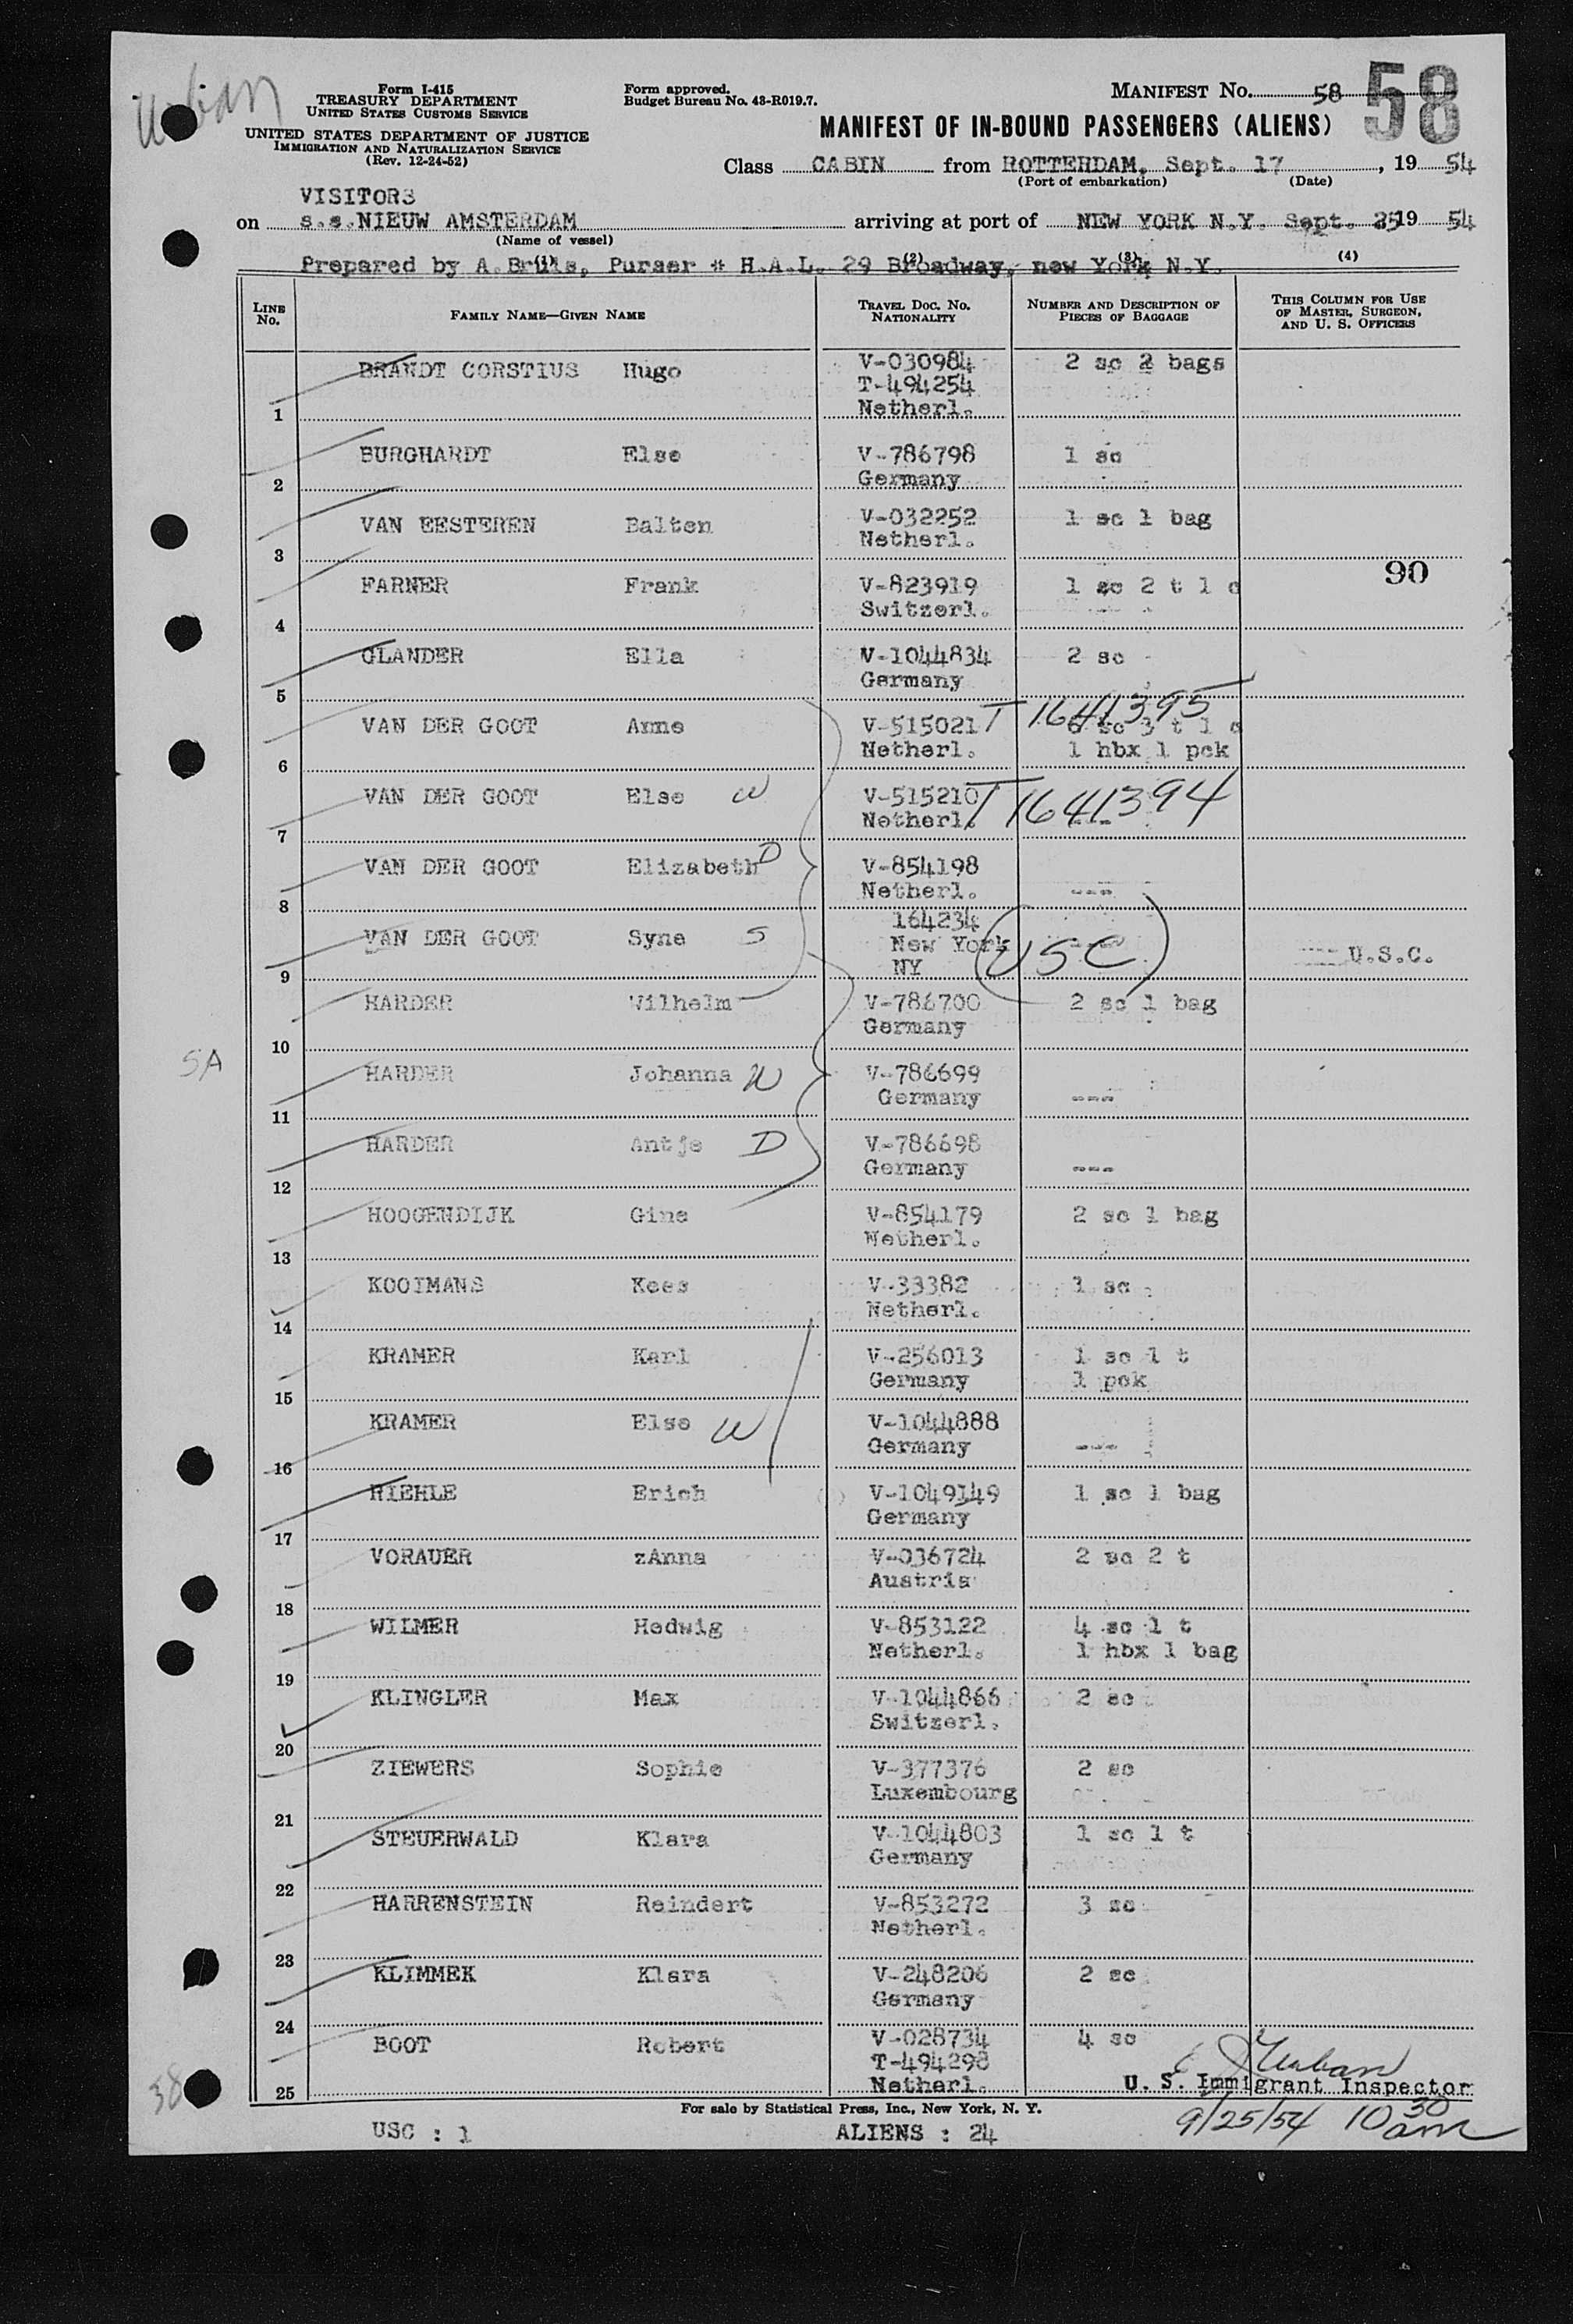 Form I-415
TREASURY DEPARTMENT
UNITED STATES CUSTOMS SERVICE
UNITED STATES DEPARTMENT OF JUSTICE
IMMIGRATION AND NATURALIZATION SERVICE
(Rev. 12-24-52)
Form approved.
Budget Bureau No. 43-R019.7.
MANIFEST No. 58
58
MANIFEST OF IN-BOUND PASSENGERS (ALIENS)
Class CABIN from ROTTERDAM, Sept. 17, 19 54
(Port of embarkation) (Date)
VISITORS
on s.s.NIEUW AMSTERDAM arriving at port of NEW YORK N.Y. Sept. 25 19 54
(Name of vessel)
(1) (2) (3) (4)
Prepared by A.Brüls, Purser * H.A.L. 29 Broadway, new York N.Y.
LINE No. FAMILY NAME—GIVEN NAME TRAVEL DOC. NO. NATIONALITY NUMBER AND DESCRIPTION OF PIECES OF BAGGAGE THIS COLUMN FOR USE OF MASTER, SURGEON, AND U. S. OFFICERS
BRANDT CORSTIUS Hugo V-030984 2 sc 2 bags
T-494254
1 Netherl.
BURGHARDT Else V-786798 1 sc
2 Germany
VAN EESTEREN Balten V-032252 1 sc 1 bag
3 Netherl.
90
FARNER Frank V-823919 1 sc 2 t 1 c
4 Switzerl.
GLANDER Ella V-1044834 2 sc
5 Germany
T1641395
VAN DER GOOT Anne V-515021 6 sc 3 t 1 c
6 Netherl. 1 hbx 1 pck
VAN DER GOOT Else W V-515210 T1641394
7 Netherl. ---
VAN DER GOOT Elizabeth D V-854198
8 Netherl. ---
164234
VAN DER GOOT Syne S New York (USC) --- U.S.C.
9 NY
HARDER Wilhelm V-786700 2 sc 1 bag
10 Germany
5A
HARDER Johanna W V-786699
11 Germany ---
HARDER Antje D V-786698
12 Germany ---
HOOGENDIJK Gine V-854179 2 sc 1 bag
13 Netherl.
KOOIMANS Kees V-33382 1 sc
14 Netherl.
KRAMER Karl V-256013 1 sc 1 t
15 Germany 1 pck
KRAMER Else W V-1044888
16 Germany ---
RIEHLE Erich V-1049149 1 sc 1 bag
17 Germany
VORAUER zAnna V-036724 2 sc 2 t
18 Austria
WILMER Hedwig V-853122 4 sc 1 t
19 Netherl. 1 hbx 1 bag
KLINGLER Max V-1044866 2 sc
20 Switzerl.
ZIEWERS Sophie V-377376 2 sc
21 Luxembourg
STEUERWALD Klara V-1044803 1 sc 1 t
22 Germany
HARRENSTEIN Reindert V-853272 3 sc
23 Netherl.
KLIMMEK Klara V-248206 2 sc
24 Germany
BOOT Robert V-028734 4 sc
T-494298
25 Netherl. U. S. Immigrant Inspector
38
For sale by Statistical Press, Inc., New York, N. Y.
9/25/54 10 30 am
USC : 1 ALIENS : 24